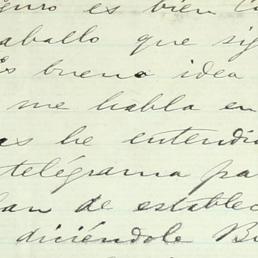 guro es bien Cu
aballo que sig
Es buena idea
me habla en
as he entendid
telégrama pa
han de establec
diciéndole Bu